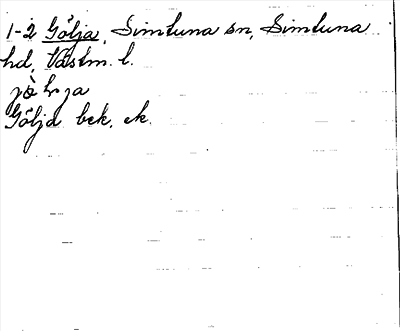 1-2 Gölja, Simtuna sn, Simtuna
hd, Västm. l.
Gölja bek. ek.